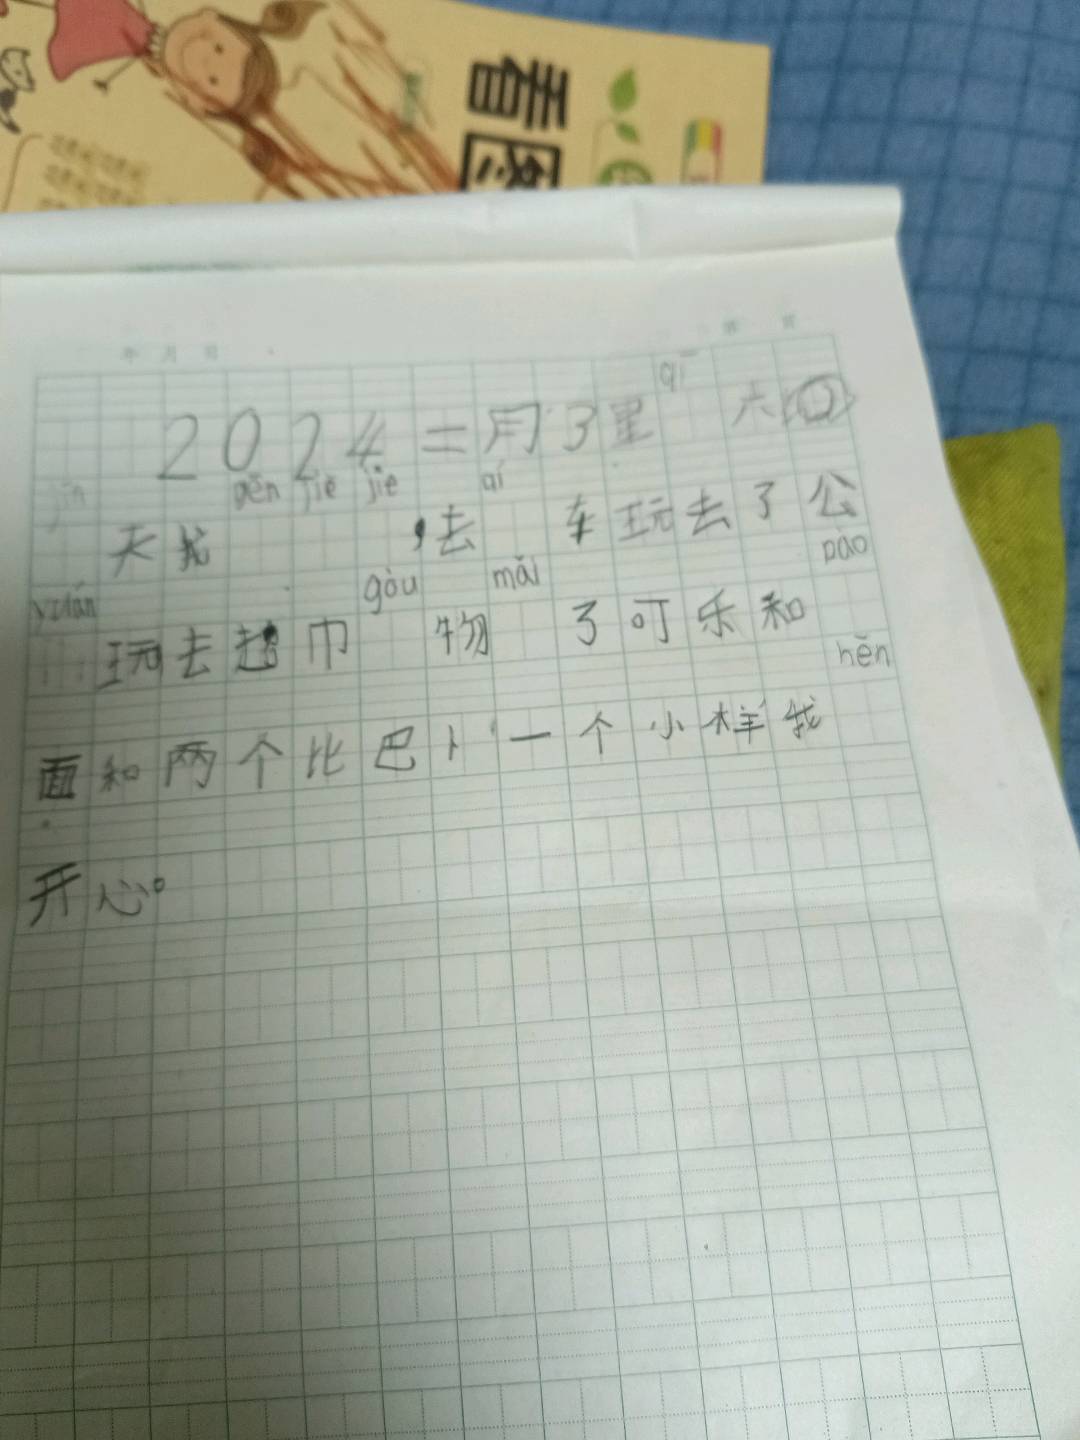 看图
年 月 日
第 页
2024二月3星qī六
jīn天我gēn jiě jie，去qí车玩去了公
yuán玩去超巾gòu物mǎi了可乐和pào
面和两个比巴卜一个小样我hěn
开心。